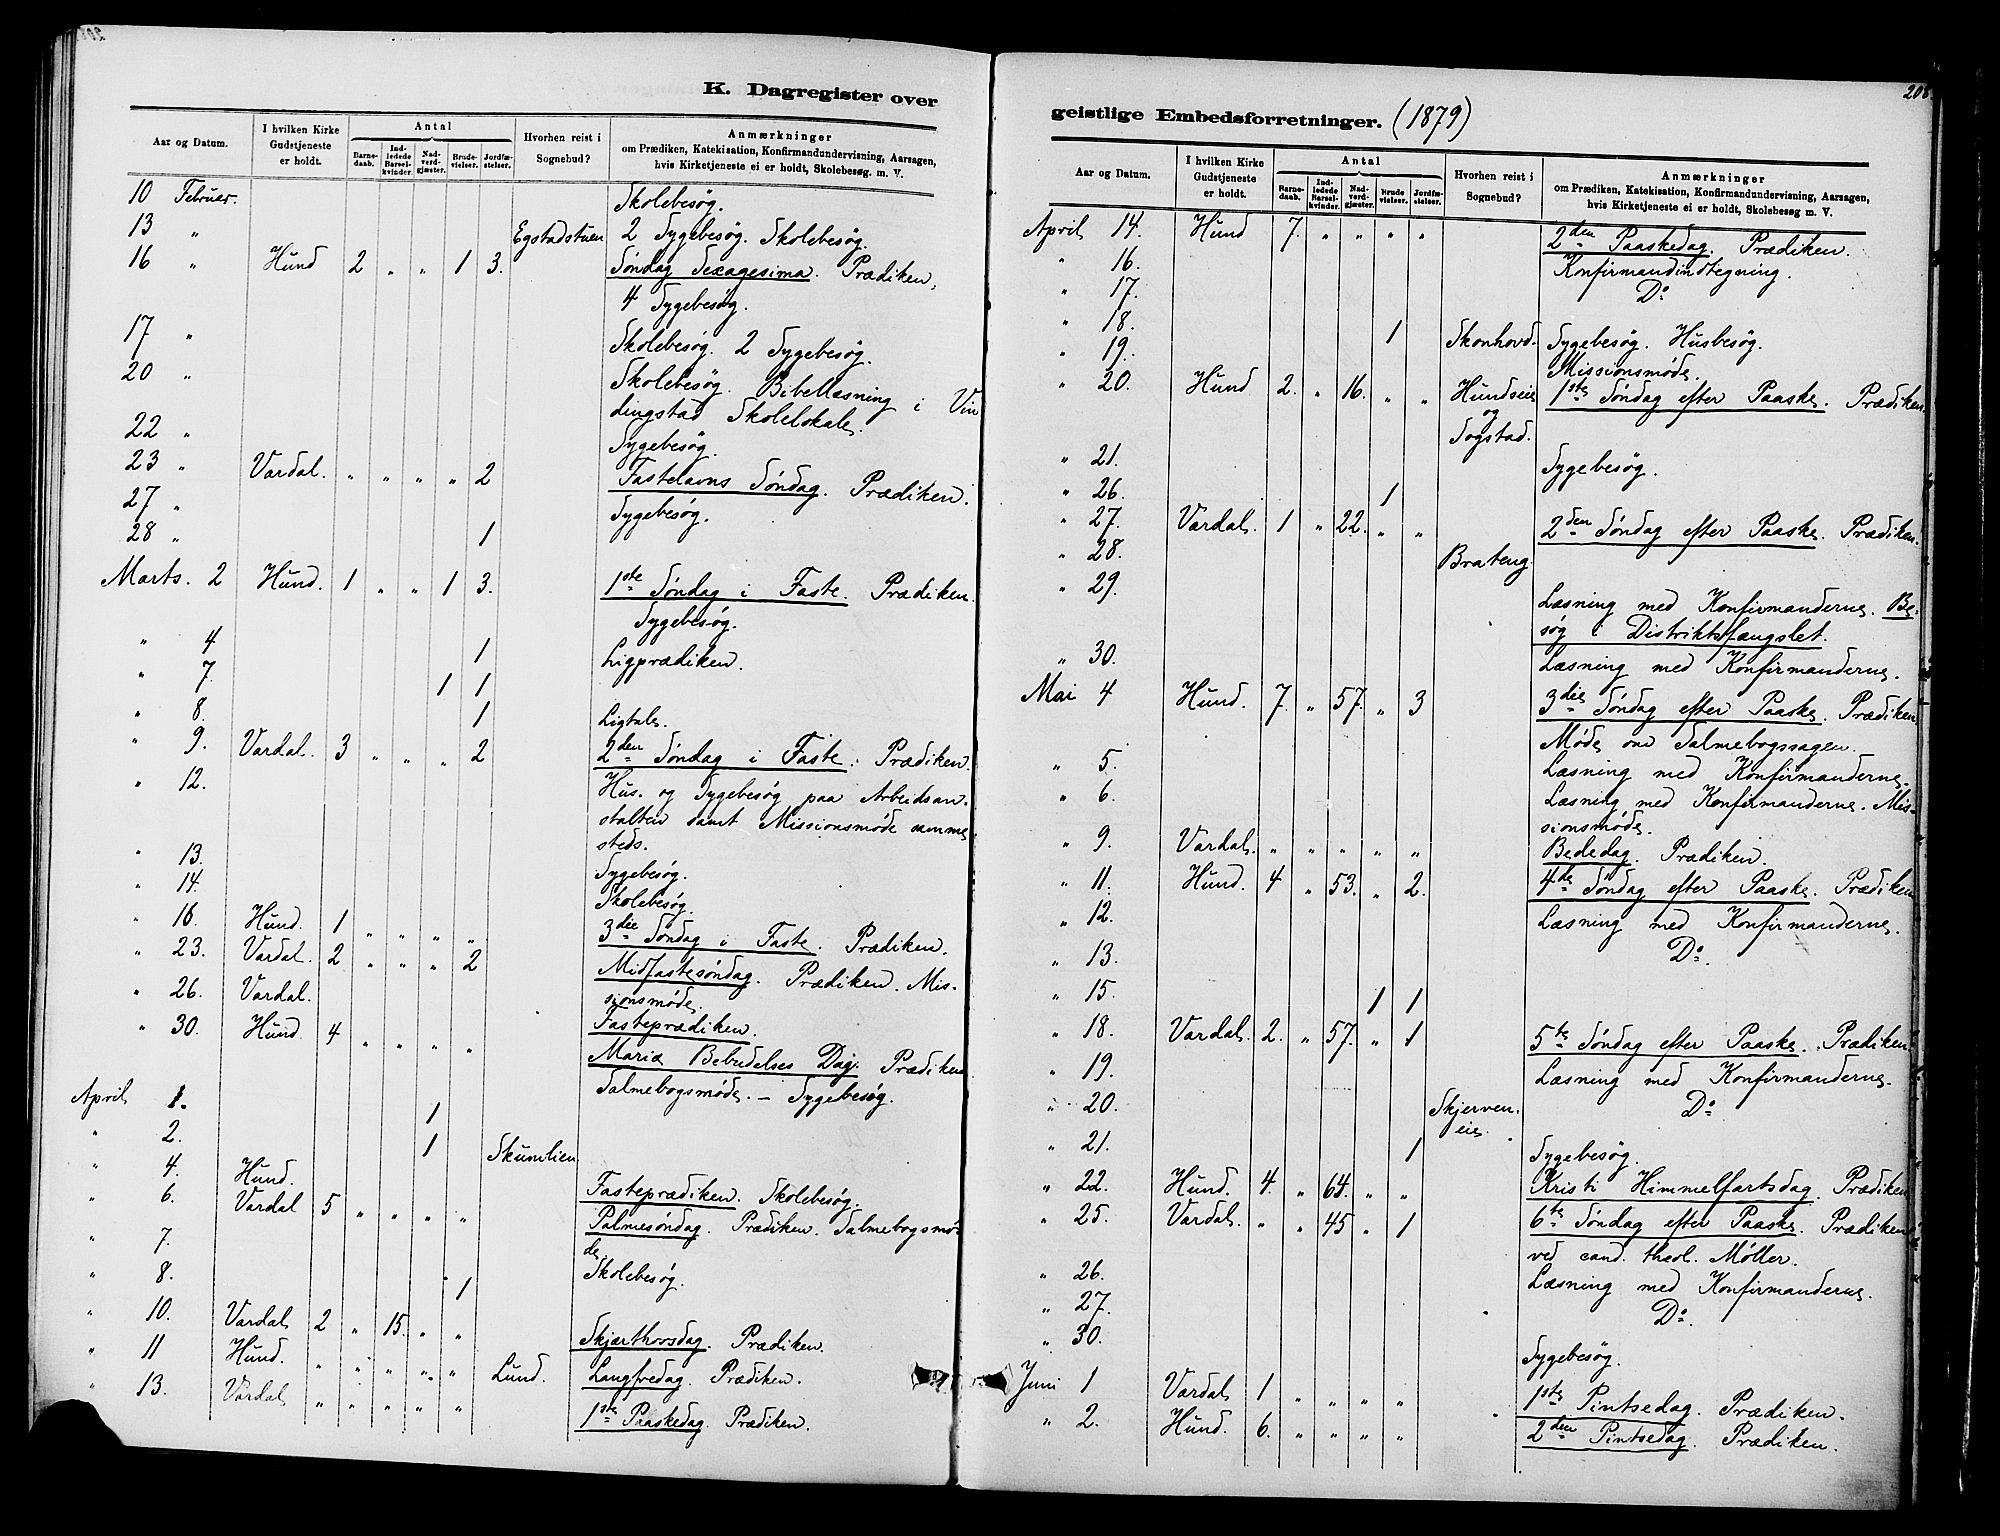 K. Dagregister over
Aar og Datum. I hvilken Kirke Gudstjeneste er holdt. Antal Barnedaab. Indledede Barselkvinder. Nadverdgjæster. Brudevielser. Jordfæstelser. Hvorhen reist i Sognebud? Anmærkninger
om Prædiken, Katekisation, Konfirmandundervisning, Aarsagen,
hvis Kirketjeneste ei er holdt, Skolebesøg m. V.
10 Februar. Skolebesøg.
13 " Egstadstuen 2 Sygebesøg. Skolebesøg.
16 " Hund 2 " " 1 3. Søndag Sexagesima. Prædiken,
4 Sygebesøg.
17 " Skolebesøg. 2 Sygebesøg.
20 " Skolebesøg. Bibellæsning i Vin
dingstad Skolelokale.
22 " Sygebesøg.
23 " Vardal. " " " " 2 Fastelavns Søndag. Prædiken.
27 " Sygebesøg.
28 " 1
Marts. 2 Hund. 1 " " 1 3. 1ste Søndag i Faste. Prædiken.
Sygebesøg.
" 4 1 Ligprædiken.
" 7. 1 1
" 8. 1 Ligtale.
" 9. Vardal. 3 " " " 2 2den Søndag i Faste. Prædiken.
" 12. Hus- og Sygebesøg paa Arbeidsan-
stalten samt Missionsmøde samme
steds.
" 13. Sygebesøg.
" 14. Skolebesøg.
" 16. Hund. 1 " " " " 3die Søndag i Faste. Prædiken.
" 23. Vardal. 2 " " " 2 Midfastesøndag. Prædiken. Mis-
sionsmøde.
" 26. Vardal. Fasteprædiken.
" 30. Hund. 4 " " " " Mariæ Bebudelses Dag. Prædiken
Salmebogsmøde. – Sygebesøg.
April 1. 1
" 2. 1 Skumlien
" 4. Hund. Fasteprædiken. Skolebesøg.
" 6. Vardal 5 " " " " Palmesøndag. Prædiken. Salmebogsmø-
de.
" 7. Skolebesøg.
" 8. 1
" 10. Vardal 2 " 15. " " Skjærthorsdag. Prædiken.
" 11 Hund. " " " " " Lund. Langfredag. Prædiken.
" 13. Vardal " " " " " 1ste Paaskedag. Prædiken.
208
geistlige Embedsforretninger. (1879)
Aar og Datum. I hvilken Kirke Gudstjeneste er holdt. Antal Barnedaab. Indledede Barselkvinder. Nadverdgjæster. Brudevielser. Jordfæstelser. Hvorhen reist i Sognebud? Anmærkninger
om Prædiken, Katekisation, Konfirmandundervisning, Aarsagen,
hvis Kirketjeneste ei er holdt, Skolebesøg m. V.
April 14. Hund 7. " " " " 2den Paaskedag. Prædiken.
" 16. Konfirmandindtegning.
" 17. Do
" 18. 1 Skonhovd. Sygebesøg. Husbesøg.
" 19. Missionsmøde.
" 20. Hund 2. " 16. " " Hundseie 1ste Søndag efter Paaske. Prædiken.
og
Sogstad.
" 21. Sygebesøg.
" 26. 1
" 27. Vardal. 1 " 22. " " 2den Søndag efter Paaske. Prædiken.
" 28. Brateng.
" 29. Læsning med Konfirmanderne. Be-
søg i Distriktsfængslet.
" 30. Læsning med Konfirmanderne.
Mai 4 Hund. 7. " 57. " 3 3die Søndag efter Paaske. Prædiken.
Møde om Salmebogssagen.
" 5. Læsning med Konfirmanderne.
" 6. Læsning med Konfirmanderne. Mis-
sionsmøde.
" 9. Vardal. " " " " " Bededag. Prædiken.
" 11. Hund. 4 " 53. " 2. 4de Søndag efter Paaske. Prædiken
" 12. Læsning med Konfirmanderne.
" 13. Do.
" 15. 1 1
" 18. Vardal. 2. " 57. " 1 5te Søndag efter Paaske. Prædiken.
" 19. Læsning med Konfirmanderne.
" 20. Skjerven- Do
eie.
" 21. 1 Sygebesøg.
" 22. Hund. 4. " 64. " " Kristi Himmelfartsdag. Prædiken
" 25. Vardal. " " 45 " 1 6te Søndag efter Paaske. Prædiken
ved cand. theol. Møller.
" 26. Læsning med Konfirmanderne.
" 27. Do.
" 30. Sygebesøg.
Juni 1 Vardal 1 " " " " 1ste Pintsedag. Prædiken.
" 2. Hund. 6. " " " " 2den Pintsedag. Prædiken.